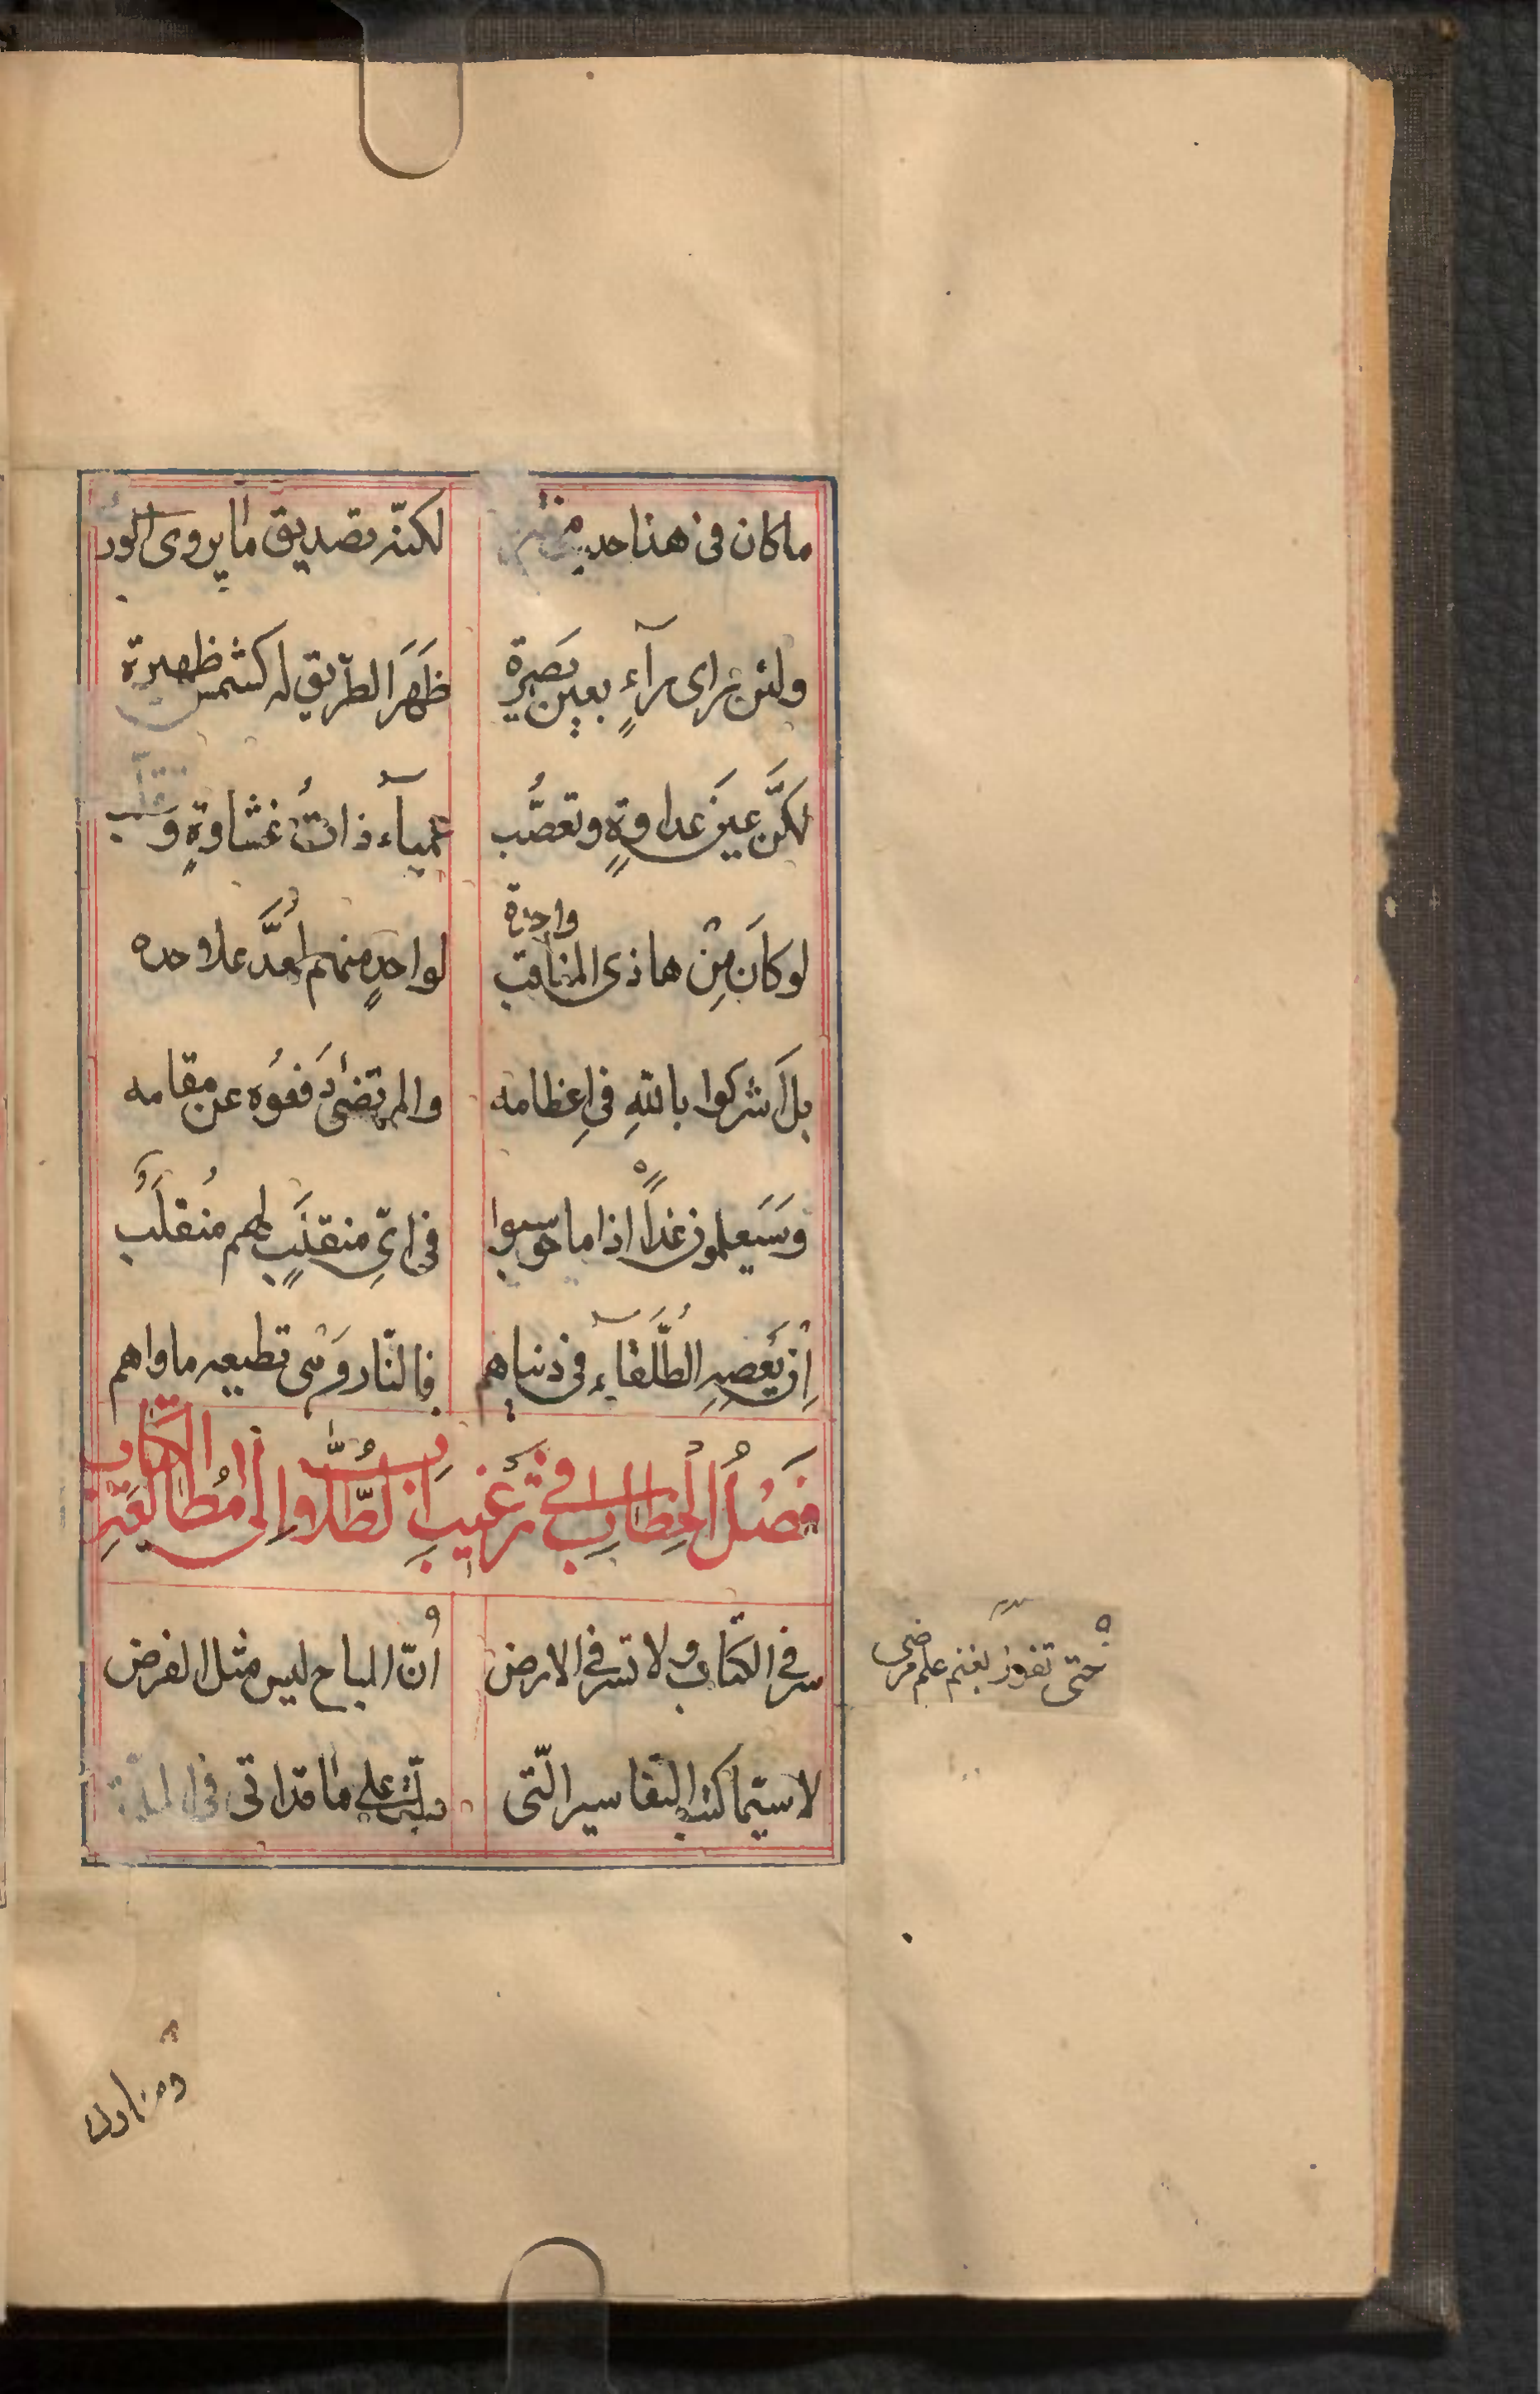 ما كان في هذا حديث مفترى لكنّه تصديق ما يروى الورى
ولئن تراى مرآءٍ بعين بَصيرة ظَهَرَ الطّريق له كشمس ظهيرة
لكنَّ عينَ عداوةٍ وتعصُّب عمياۤء ذاتُ غشاوةٍ وَتقلّب
لو كانَ مِنْ هاذى المناقب واحدة لواحدٍ منهم لَعُدَّ علاوحده
بل اَشركوا باللهِ في اِعظامه والمرتضىٰ دَفعُوه عن مقامه
وَسَيَعلمون غداً اذا ما حوسبوا في ايّ منقلَبٍ لهم مُنقلَبُ
اِنْ يَعصهِ الطُّلَقاۤء في دنياهم فالنّار وَمن تطيعه ماواهم
فَصْلُ الْخِطابِ في تَرغيبِ الطُّلّابِ اِلى مُطالَعَةِ الكتاب
سر في الكتاب ولا تسر في الارض اُنّ المباح ليس مثل الفرض
حتى تفوز بغنم علم مرضى
لا سيّما كتب التفاسير الّتى دلّت على ما قد اتى في الملّة